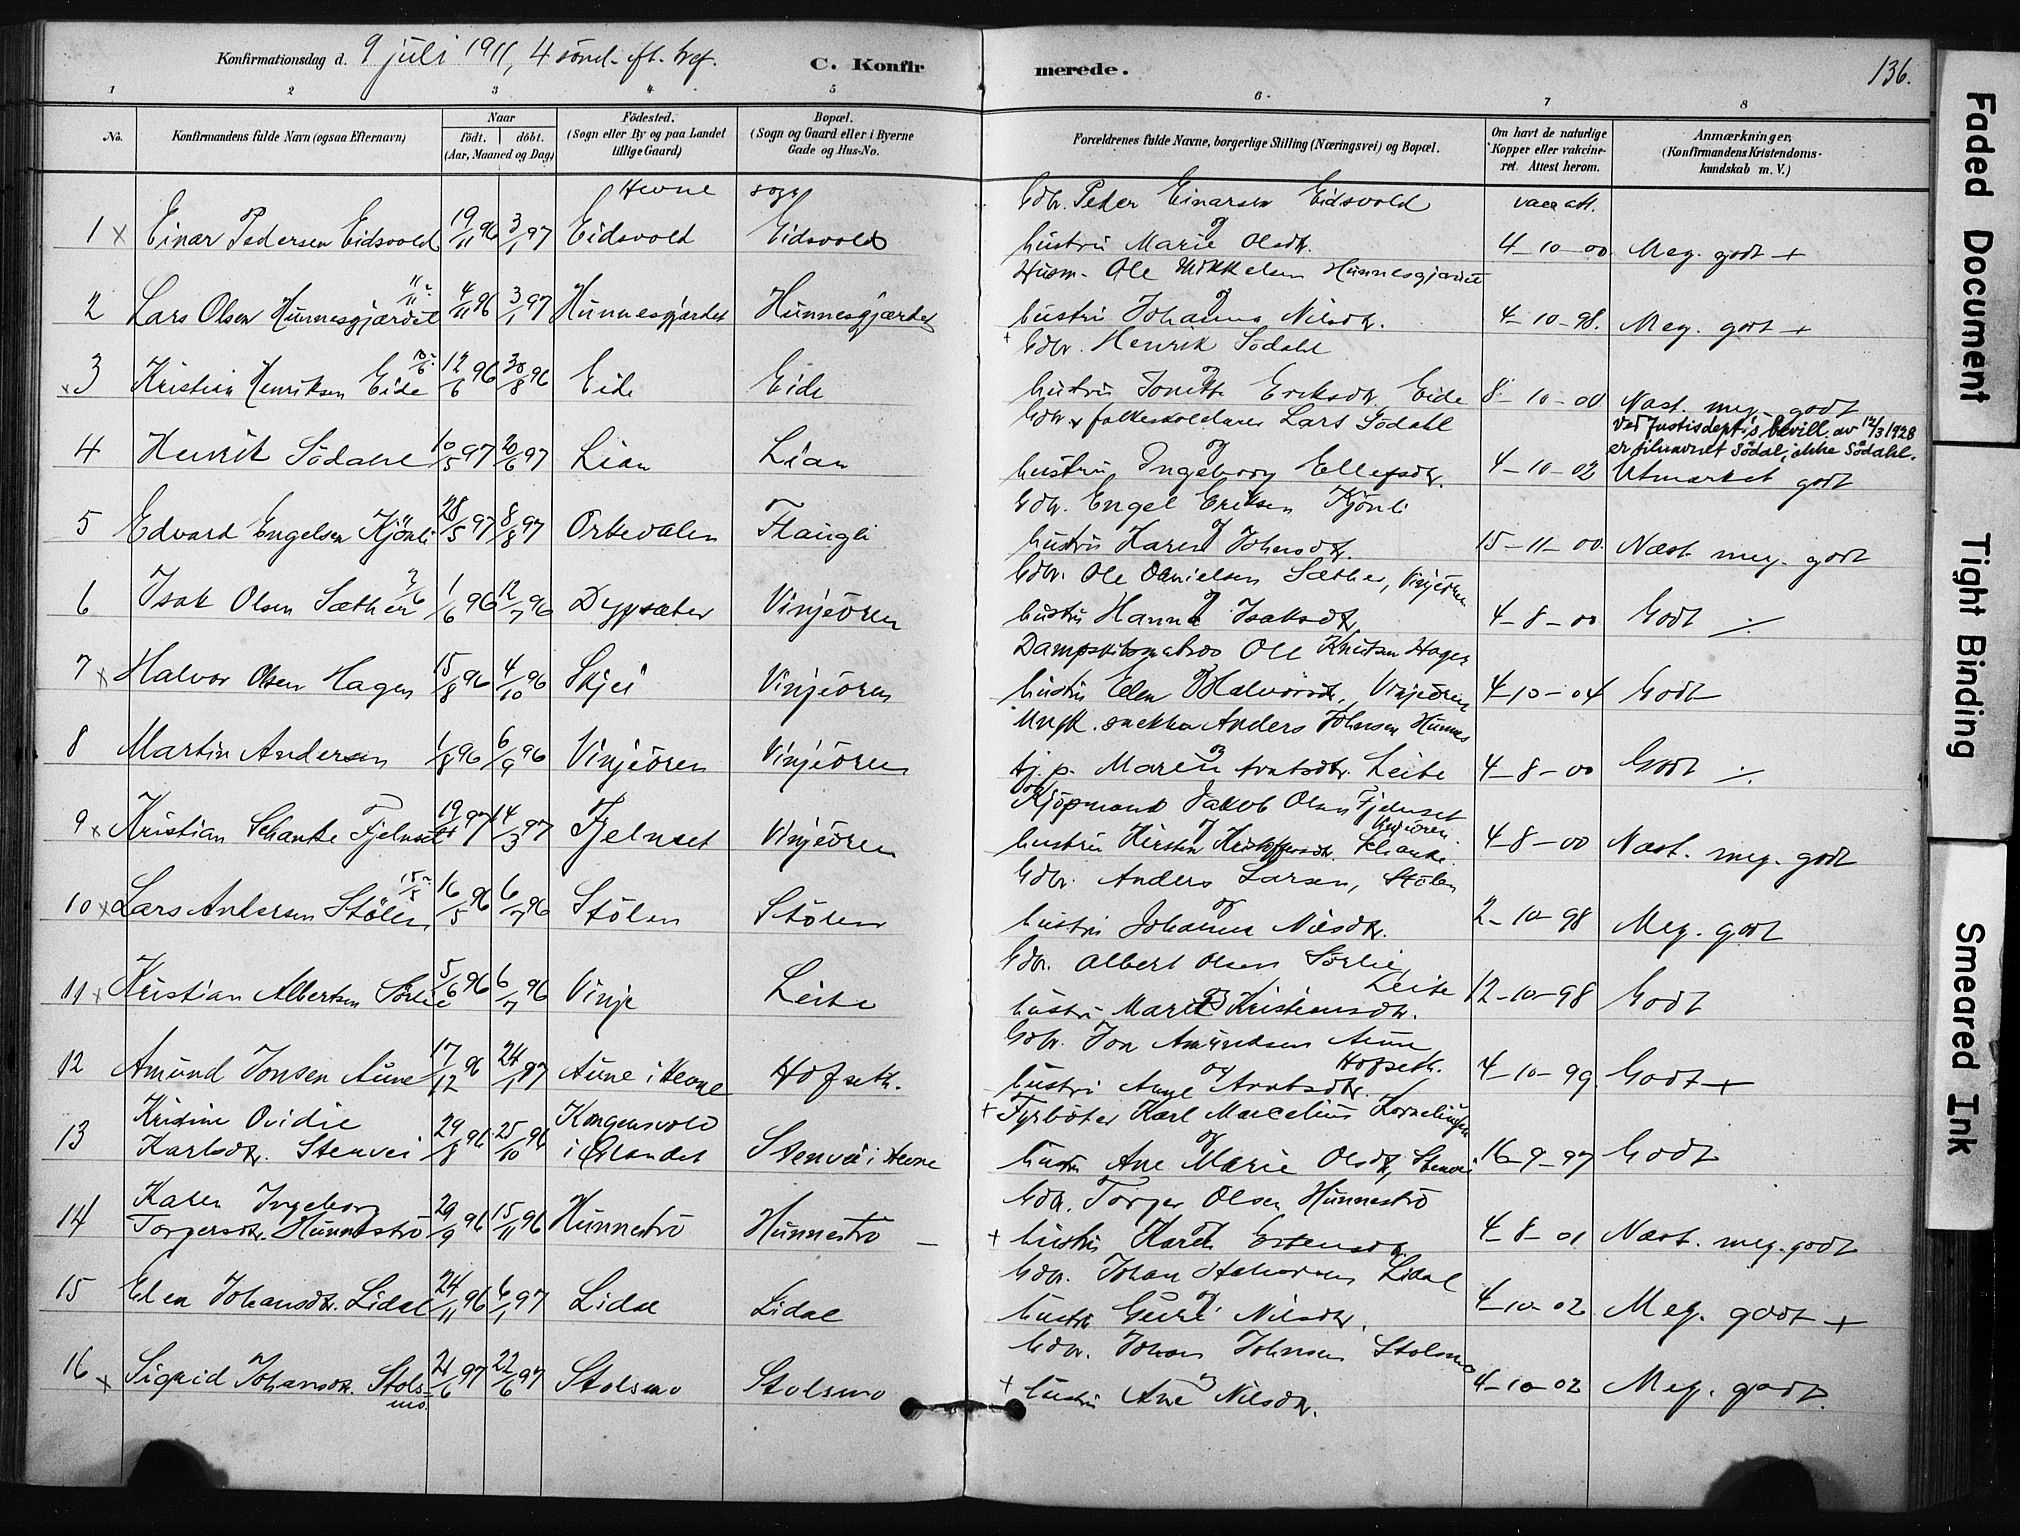 Konfirmationsdag d. 9 juli 1911, 4 sönd. eft. tref.
C. Konfirmerede.
136.
1 2 3 4 5 6 7 8
No.
Konfirmandens fulde Navn (ogsaa Efternavn)
Naar
født. døbt.
(Aar, Maaned og Dag)
Fødested.
(Sogn eller By og paa Landet
tillige Gaard)
Bopæl.
(Sogn og Gaard eller i Byerne
Gade og Hus-No.
Forældrenes fulde Navne, borgerlige Stilling (Næringsvei) og Bopæl.
Om havt de naturlige
Kopper eller vakcine-
ret. Attest herom.
Anmærkninger.
(Konfirmandens Kristendoms-
kundskab m. V.)
Hevne sogn
Gdbr. Peder Einarsen Eidsvold
vacc att.
1 x Einar Pedersen Eidsvold 19/11 96 3/1 97 Eidsvold Eidsvold
og
hustru Marie Olsdtr. 4-10-00. Meg. godt +
Husm. Ole Mikkelsen Hunnesgjærdet
2 Lars Olsen Hunnesgjærdet 4/11 96 3/1 97 Hunnesgjærdet Hunnesgjærdet
og
hustru Johanna Nilsdtr. 4-10-98. Meg. godt +
+ Gdbr. Henrik Södahl
x 3 Kristian Henriksen Eide 12/6 96 30/8 96 Eide Eide
og
hustru Jonette Eriksdtr. Eide 8-10-00 Næst. meg. godt
Gdbr. & folkeskolelærer Lars Södahl
Ved Justisdept's bevill. av 12/3 1928
er filnavnet Södal, ikke Södahl.
4 Henrik Södahl 10/5 97 20/6 97 Lian Lian
og
hustru Ingeborg Ellefsdtr. 4-10-02 Utmærket godt
Gdbr. Engel Eriksen Kjönli
5 Edvard Engelsen Kjönli 28/5 97 8/8 97 Orkedalen Flaugli
og
hustru Karen Johnsdtr. 15-11-00. Næst. meg. godt
Gdbr. Ole Danielsen Sæther, Vinjeören
6 Isak Olsen Sæther 1/6 96 12/7 96 Vinjeören
og
hustru Hanna Isaksdtr. 4-8-00 Godt ./.
Dampskibsmatros Ole Knutsen Hagen
7 x Halvor Olsen Hagen 15/8 96 4/10 96 Skjei Vinjeören
og
hustru Elen Halvorsdtr, Vinjeören 4-10-04 Godt
Ungk. snekker Anders Johnsen Hunnes
8 Martin Andersen 1/8 96 6/9 96 Vinjeören Vinjeören
og
tj.p. Maren Arntsdtr. Leite 4-8-00 Godt ./.
Kjöpmand Jakob Olsen Fjelnset
Vinjeören
9 x Kristian Schanke Fjelnset 97 14/3 97 Fjelnset Vinjeören
og
hustru Kirsten Kristoffersdtr. Schanke. 4-8-00 Næst. meg. godt
Gdbr. Anders Larsen, Stölen
10 x Lars Andersen Stölen 16/5 96 6/7 96 Stölen Stören
og
hustru Johanna Nilsdtr. 2-10-98 Meg. godt
Gdbr. Albert Olsen Sörlie,
Leite
11 x Kristian Albertsen Sörlie 5/6 96 6/7 96 Vinje Leite
og
hustru Marit Kristiansdtr. 12-10-98 Godt
Gdbr. Jon Amundsen Aune
Hofseth.
12 Amund Jonsen Aune 17/12 96 24/1 97 Aune i Hevne Hofseth.
og
hustru Anne Arntsdtr. 4-10-99. Godt +
+ Fyrböter Karl Marcelius Kornelius
13 Kristine Ovidie
Karlsdtr. Stenvei 29/8 96 25/10 96 Kongensvold
i Ørlandet Stenvei i Hevne
og
hustru Ane Marie Olsdtr, Stenvei 16-9-97 Godt
Gdbr. Torger Olsen Hunneströ
14 Karen Ingeborg
Torgersdtr. Hunneströ 29/9 96 15/11 96 Hunneströ Hunneströ
og
+ hustru Karen Estensdtr. 4-8-01 Næst. meg. godt
Gdbr. Johan Lidal
15 Elen Johansdtr. Lidal 24/11 96 6/1 97 Lidal Lidal
og
hustru Guri Nilsdtr. 4-10-02. Meg. godt +
Gdbr. Johan Johnsen Stolsmo
16 x Sigrid Johansdtr. Stols-
mo. 21/6 97 22/6 97 Stolsmo Stolsmo
og
+ hustru Ane Nilsdtr. 4-10-02 Meg. godt.
Faded Document
Tight Binding
Smeared Ink